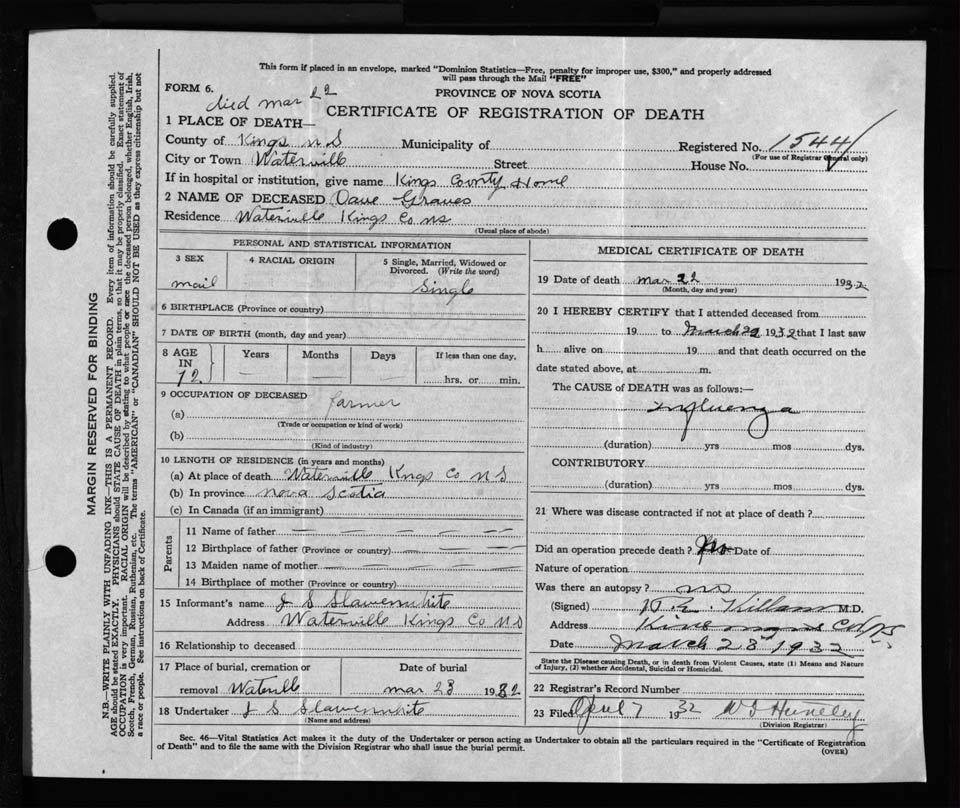 This form if placed in an envelope, marked "Dominion Statistics—Free, penalty for improper use, $300," and properly addressed
will pass through the Mail "FREE"
FORM 6.
PROVINCE OF NOVA SCOTIA
died mar 22
CERTIFICATE OF REGISTRATION OF DEATH
1 PLACE OF DEATH—
County of Kings N S Municipality of Registered No. 1544
(For use of Registrar General only)
City or Town Waterville Street House No.
If in hospital or institution, give name Kings County Home
2 NAME OF DECEASED Dave Graves
Residence Waterville Kings Co NS
(Usual place of abode)
PERSONAL AND STATISTICAL INFORMATION
3 SEX
mail
4 RACIAL ORIGIN
5 Single, Married, Widowed or
Divorced. (Write the word)
Single
6 BIRTHPLACE (Province or country)
7 DATE OF BIRTH (month, day and year)
8 AGE IN
72
Years Months Days If less than one day,
hrs. or min.
9 OCCUPATION OF DECEASED
(a) farmer
(Trade or occupation or kind of work)
(b)
(Kind of industry)
10 LENGTH OF RESIDENCE (in years and months)
(a) At place of death Waterville Kngs Co N S
(b) In province nova Scotia
(c) In Canada (if an immigrant)
Parents
11 Name of father
12 Birthplace of father (Province or country)
13 Maiden name of mother
14 Birthplace of mother (Province or country)
15 Informant's name J S Slawenwhite
Address Waterville Kings Co N S
16 Relationship to deceased
17 Place of burial, cremation or Date of burial
removal Waterville mar 23 1932
18 Undertaker J S Slawenwhite
(Name and address)
MEDICAL CERTIFICATE OF DEATH
19 Date of death mar 22 1932
(Month, day and year)
20 I HEREBY CERTIFY that I attended deceased from
19 to March 22 1932 that I last saw
h alive on 19 and that death occurred on the
date stated above, at m.
The CAUSE of DEATH was as follows:—
Influenza
(duration) yrs mos dys.
CONTRIBUTORY
(duration) yrs mos dys.
21 Where was disease contracted if not at place of death?
Did an operation precede death? No Date of
Nature of operation
Was there an autopsy? no
(Signed) Killam M.D.
Address Co NS
Date March 28 1932
State the Disease causing Death, or in death from Violent Causes, state (1) Means and Nature
of Injury, (2) whether Accidental, Suicidal or Homicidal.
22 Registrar's Record Number
23 Filed April 7 1932
(Division Registrar)
Sec. 46—Vital Statistics Act makes it the duty of the Undertaker or person acting as Undertaker to obtain all the particulars required in the "Certificate of Registration
of Death" and to file the same with the Division Registrar who shall issue the burial permit.
(OVER)
MARGIN RESERVED FOR BINDING
N.B.—WRITE PLAINLY WITH UNFADING INK—THIS IS A PERMANENT RECORD. Every item of information should be carefully supplied.
AGE should be stated EXACTLY. PHYSICIANS should STATE CAUSE OF DEATH in plain terms, so that it may be properly classified. Exact statement of
OCCUPATION is very important. RACIAL ORIGIN will be described by stating to what people or race the deceased person belonged, whether English, Irish,
Scotch, French, German, Russian, Ruthenian, etc. The terms "AMERICAN" or "CANADIAN" SHOULD NOT BE USED as they express citizenship but not
a race or people. See instructions on back of Certificate.